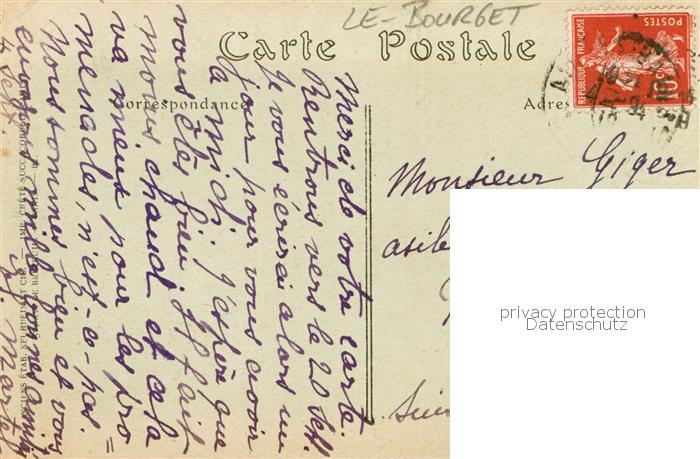 LE-BOURGET
Carte Postale
Correspondance
Adres
REPUBLIQUE FRANÇAISE
POSTES
10
Merci de votre carte.
Rentrons vers le 20 Sept.
Je vous écrirai alors un
jour pour vous avoir
à midi. J'espère que
vous êtes bien. Il fait
moins chaud et cela
va mieux pour les pro=
menades, n'est-ce-pas.
Nous sommes bien et vous
envoyons mille bonnes amitiés
4 Sept.
Monsieur Giger
asile
Suis
ANCIENS ÉTAB. NEURDEIN ET CIE. — IMP. CRÉTÉ SUCC. CORBEIL
privacy protection
Datenschutz